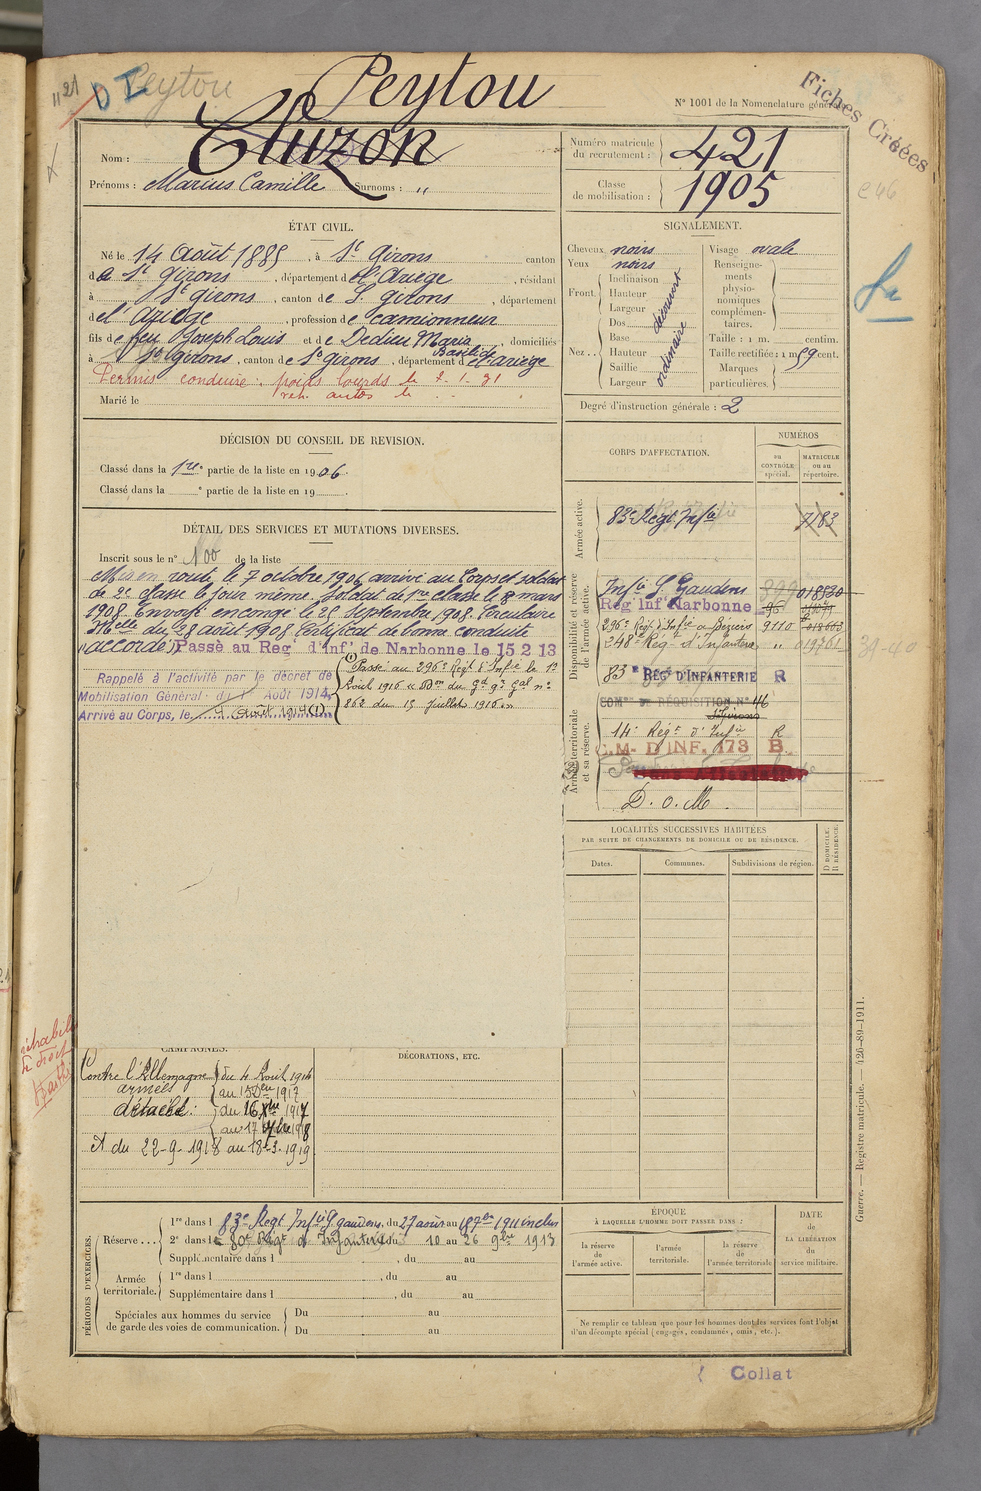 Peytou
Peytou
N° 1001 de la Nomenclature générale
Fiches Créées
Nom :
Prénoms : Marius Camille Surnoms : "
Numéro matricule du recrutement : 421
Classe de mobilisation : 1905
ÉTAT CIVIL.
Né le 14 Août 1885, à St Girons canton
de St Girons, département de l'Ariège, résidant
à St Girons, canton de St Girons, département
de l'Ariège, profession de camionneur
fils de feu Joseph Louis et de Dedieu Maria Basilide, domiciliés
à St Girons, canton de St Girons, département de l'Ariège
Permis conduire poids lourds le
Marié le
SIGNALEMENT.
Cheveux noirs
Yeux noirs
Front. Inclinaison
Hauteur
Largeur
découvert
Nez.. Dos
Base
Hauteur
Saillie
Largeur
ordinaire
Visage ovale
Renseignements physionomiques complémentaires.
Taille : 1 m. centim.
Taille rectifiée : 1 m 59 cent.
Marques particulières.
Degré d'instruction générale : 2
DÉCISION DU CONSEIL DE REVISION.
Classé dans la 1re partie de la liste en 1906.
Classé dans la e partie de la liste en 19
DÉTAIL DES SERVICES ET MUTATIONS DIVERSES.
Inscrit sous le n° 100 de la liste
Mis en route le 7 octobre 1906 arrivé au Corps et soldat
de 2e classe le jour même. Soldat de 1re classe le 8 mars
1908. Envoyé en congé le 25 Septembre 1908. Circulaire
Mlle du 28 août 1908. Certificat de bonne conduite
"accordé" Passé au Reg' d'inf' de Narbonne le 15 2 13
Rappelé à l'activité par le décret de
Mobilisation Général du 1 Août 1914,
Arrivé au Corps, le 4 Août 1914 (1)
(1) Passé au 296e Régt d'Infie le 1er
Août 1916
du 15 Juillet 1916
CORPS D'AFFECTATION.
NUMÉROS
au CONTRÔLE spécial.
MATRICULE ou au répertoire.
Armée active.
83e Régt Infie 7183
Disponibilité et réserve de l'armée active.
Infie St Gaudens 018530
Reg' Inf' Narbonne
296e Régt d'Infie à Béziers 9110
248e Régt d'Infanterie "
39-40
Armée territoriale et sa réserve.
83e RÉGt D'INFANTERIE R
DE RÉQUISITION N° 46
St Girons
14e Régt d'Infie R
C.M. D'INF. 173 B.
D.o.M.
LOCALITÉS SUCCESSIVES HABITÉES
PAR SUITE DE CHANGEMENTS DE DOMICILE OU DE RÉSIDENCE.
Dates.
Communes.
Subdivisions de région.
D DOMICILE. R RÉSIDENCE.
CAMPAGNES.
DÉCORATIONS, ETC.
Contre l'Allemagne du 4 Août 1914
armées
détaché : du 16 Xbre 1917
au 17
et du 22-9-1918 au 18-3-1919
Guerre. — Registre matricule. — 426-89-1911.
PÉRIODES D'EXERCICES.
Réserve... 1re dans le 83e Régt Infie St gaudens, du 27 août au 1911 inclus
2e dans le 80e Régt d'Infanterie du 10 au 26 9bre 1913
Supplémentaire dans l , du au
Armée territoriale. 1re dans l , du au
Supplémentaire dans l , du au
Spéciales aux hommes du service de garde des voies de communication. Du au
Du au
ÉPOQUE
À LAQUELLE L'HOMME DOIT PASSER DANS :
la réserve de l'armée active.
l'armée territoriale.
la réserve de l'armée territoriale
DATE de LA LIBÉRATION du service militaire.
Ne remplir ce tableau que pour les hommes dont les services font l'objet
d'un décompte spécial (engagés, condamnés, omis, etc.).
Collat